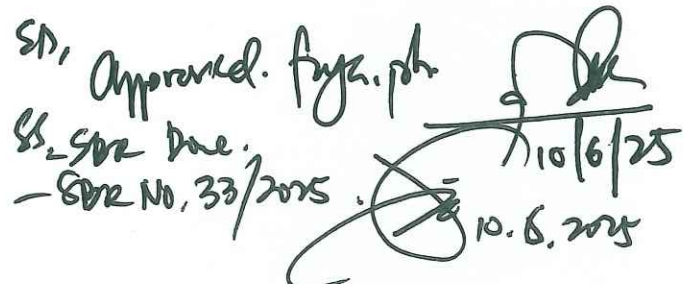 SD,
Approved. fnya. ph.
10/6/25
SS - SDR Done.
- SDR No. 33/2025.
10.6.2025